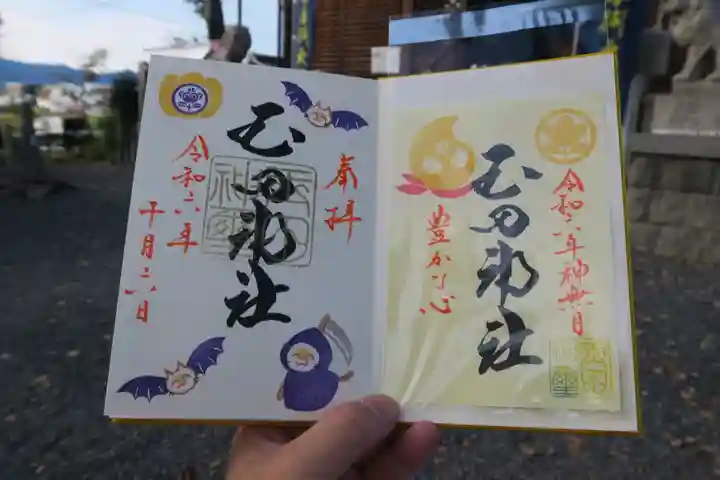 奉拝
玉田神社
令和六年
十月二六日
令和六年神無月
玉田神社
豊かな心